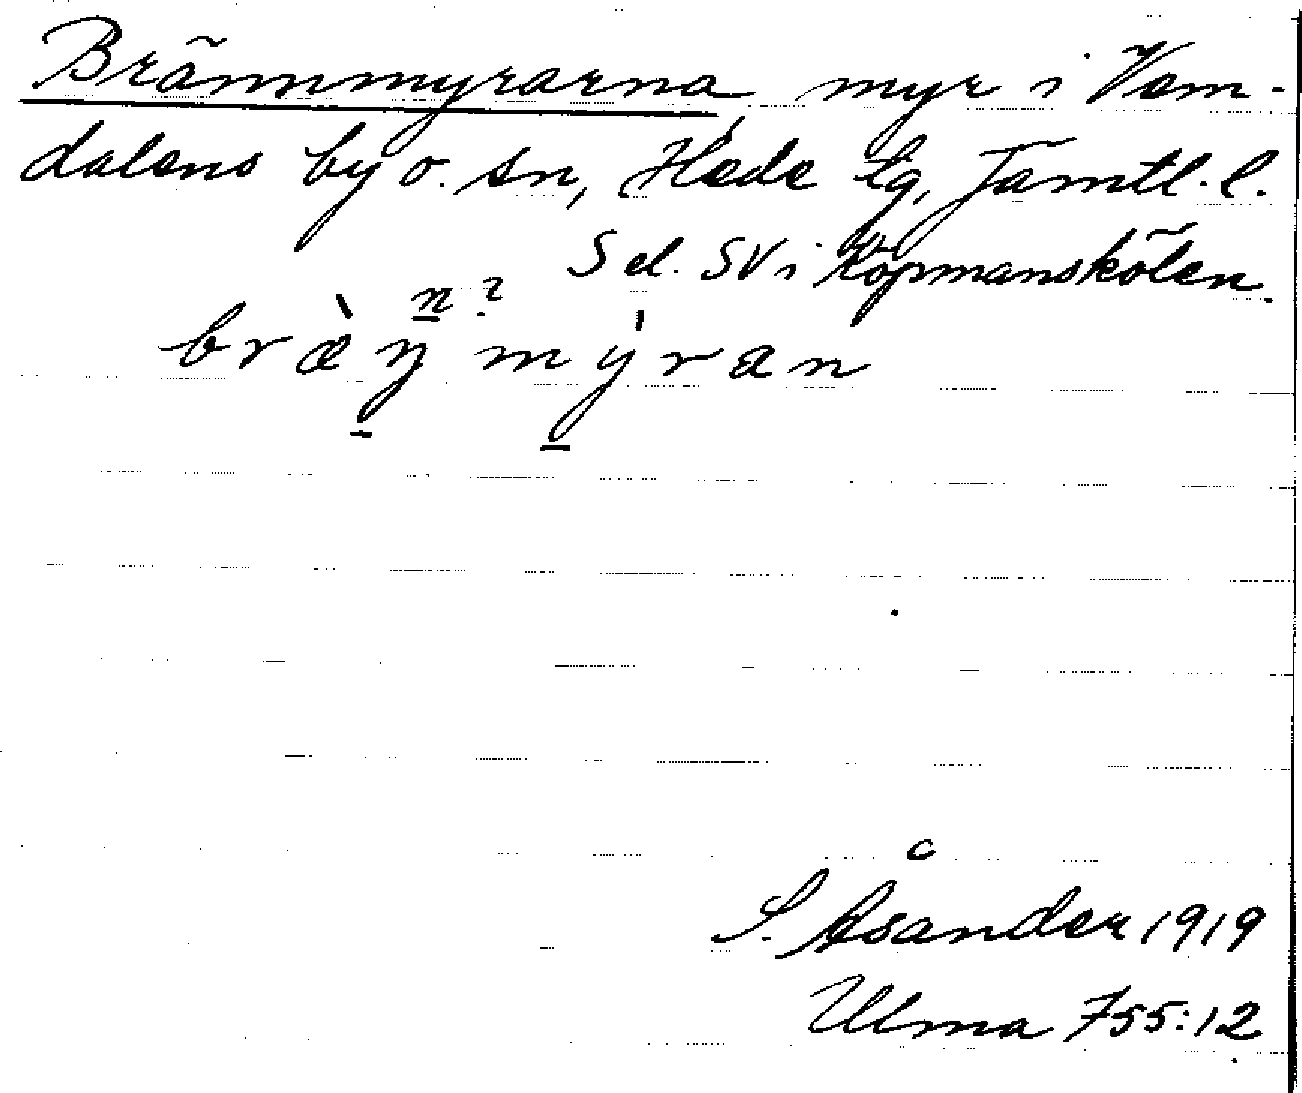 Brännmyrarna, myr i Vem-
dalens by o. sn, Hede tg, Jämtl. l.
Sel. SV i Köpmanskölen.
n?
bræ̀ŋmýran
S. Åsander 1919
Ulma 755:12